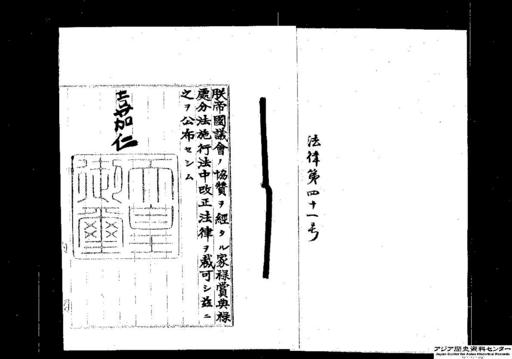 法律第四十一号
朕帝國議會ノ協賛ヲ經タル家禄賞典禄
處分法施行法中改正法律ヲ裁可シ茲ニ
之ヲ公布セシム
嘉仁
天皇御璽
アジア歴史資料センター
Japan Center for Asian Historical Records